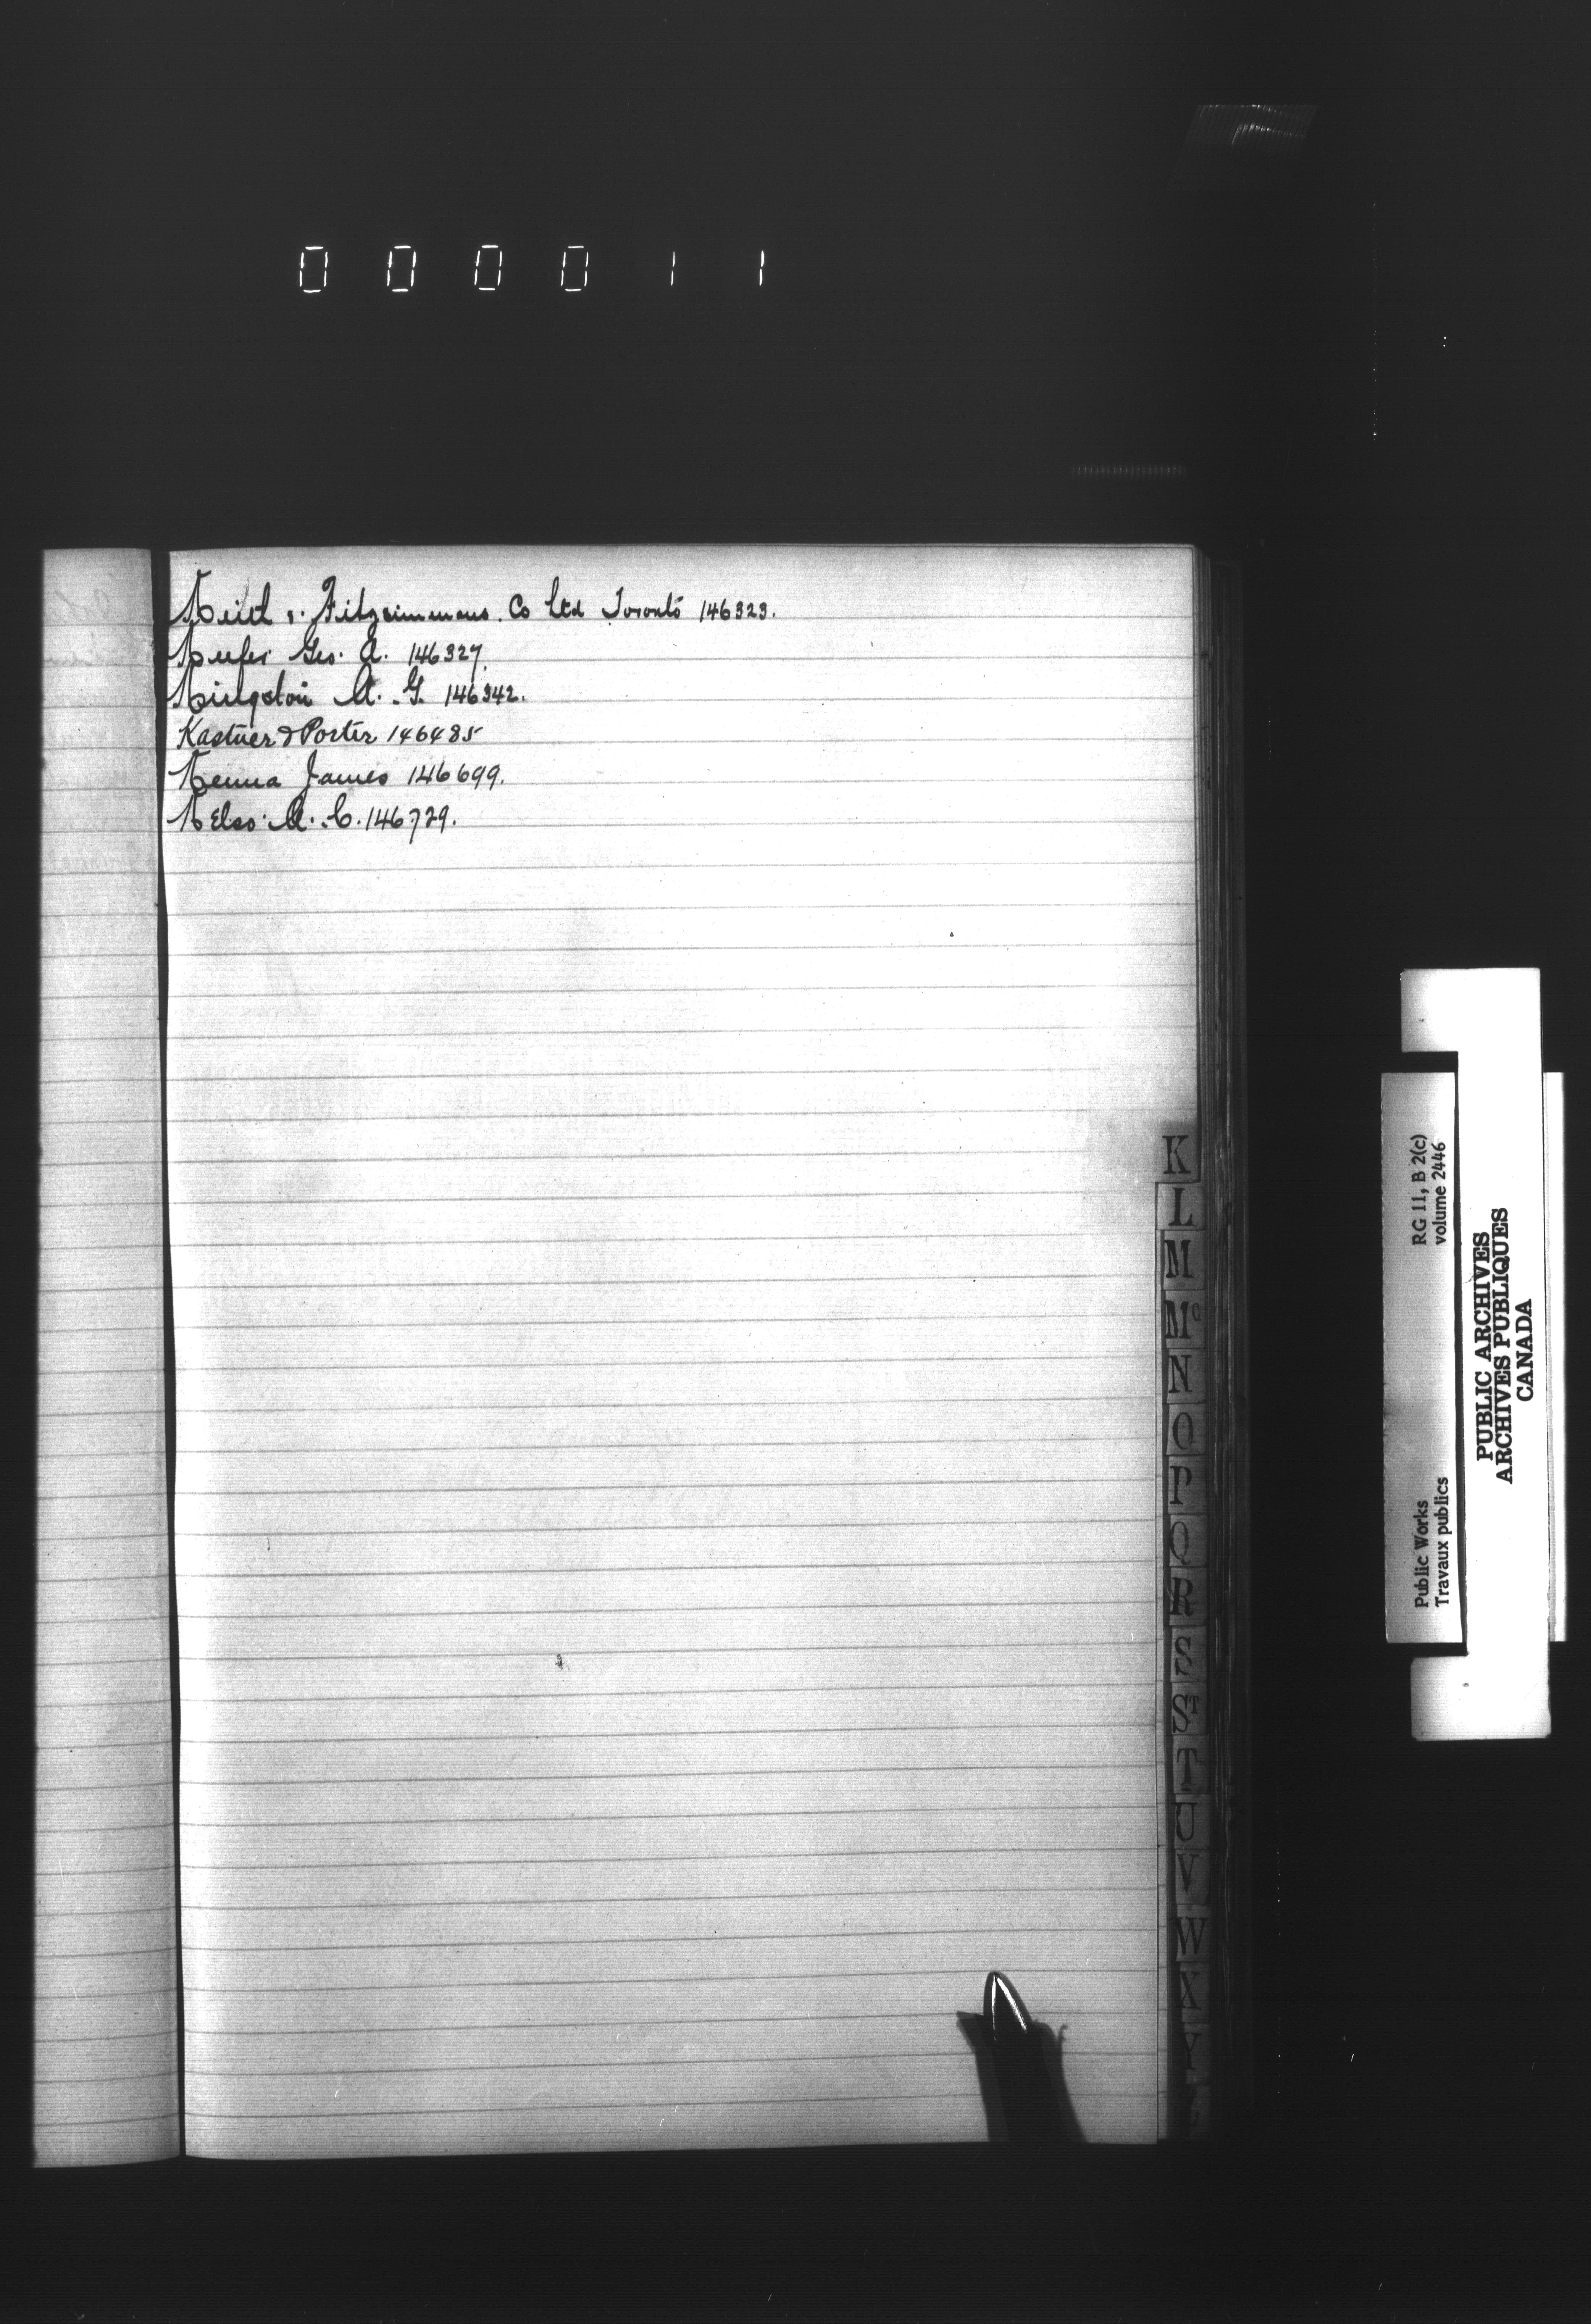 000011
Keith & Fitzsimmons. Co Ltd Toronto 146323.
Keefer Geo. A. 146327.
Kingston A. G. 146342.
Kastner & Porter 146485
Kenna James 146699.
Kelso. A. C. 146729.
K
L
M
Mc
N
O
P
Q
R
S
ST
T
U
V
W
X
Y
Public Works RG 11, B 2(c)
Travaux publics volume 2446
PUBLIC ARCHIVES
ARCHIVES PUBLIQUES
CANADA